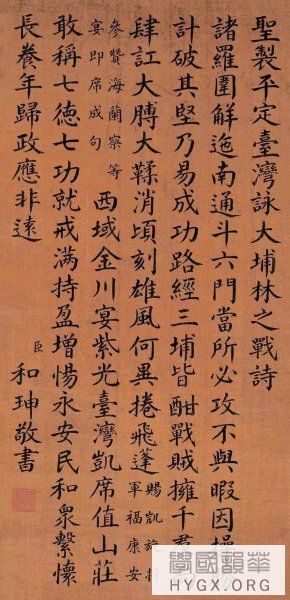 聖製平定臺灣詠大埔林之戰詩
諸羅圍解迤南通斗六門當所必攻不與暇因操
計破其堅乃易成功路經三埔皆酣戰賊擁千羣
肆訌大膊大鞣消頃刻雄風何異捲飛蓬賜凱旋將軍福康安
參贊海蘭察等宴即席成句西域金川宴紫光臺灣凱席值山莊
敢稱七德七功就戒滿持盈增惕永安民和眾繫懷
長養年歸政應非遠
臣和珅敬書
學國韻華
HYGX.ORG